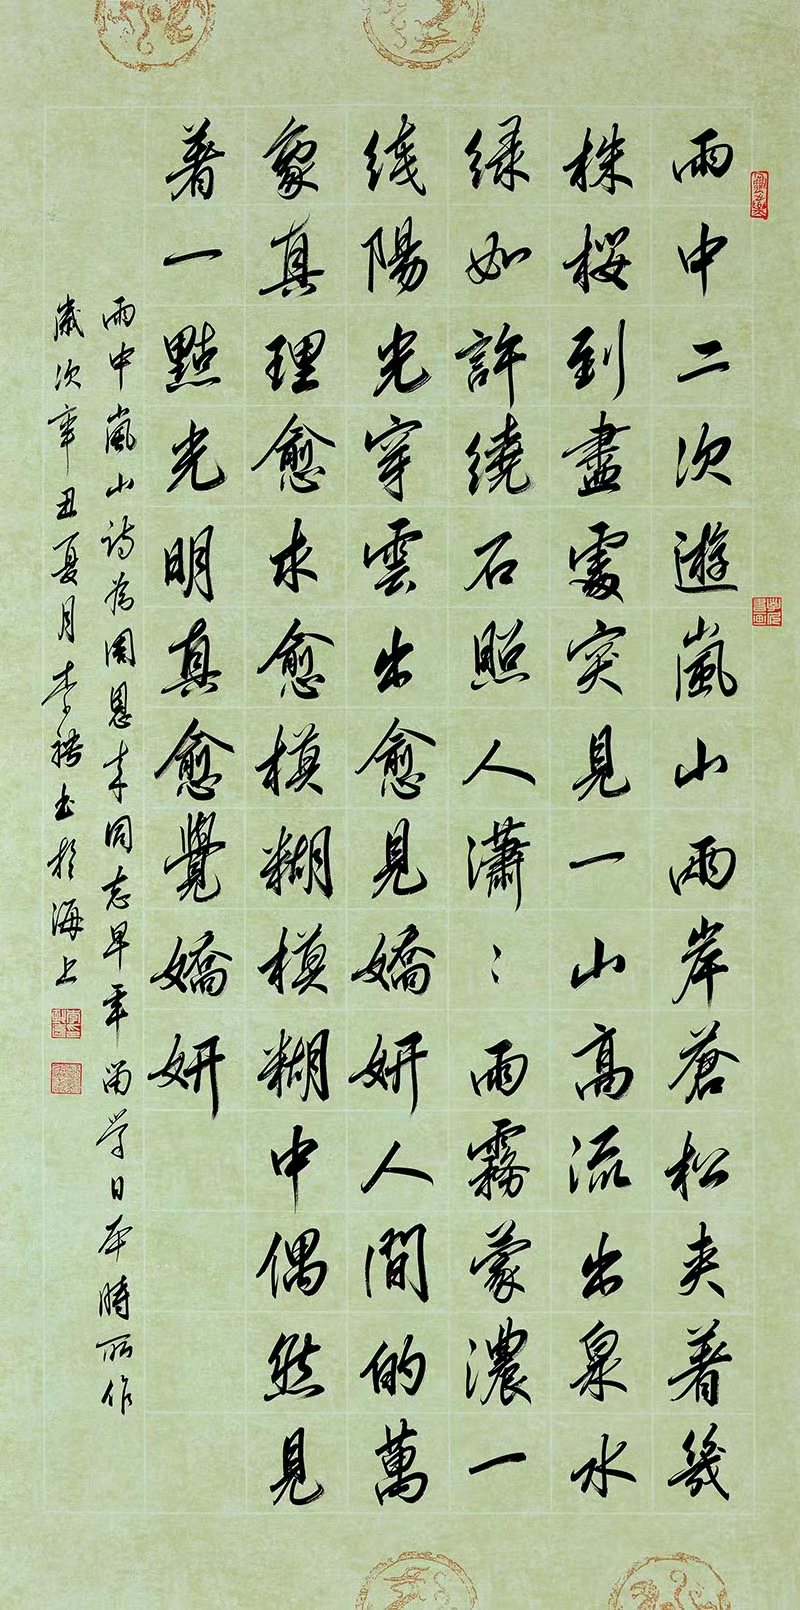 雨中二次遊嵐山雨岸蒼松夾著幾
株櫻到盡處突見一山高流出泉水
绿如許繞石照人瀟：雨霧蒙濃一
线陽光穿雲出愈見嬌妍人間的萬
象真理愈求愈模糊模糊中偶然見
著一點光明真愈覺嬌妍
雨中嵐山诗為周恩来同志早年留学日本時所作
歲次辛丑夏月李 书於海上